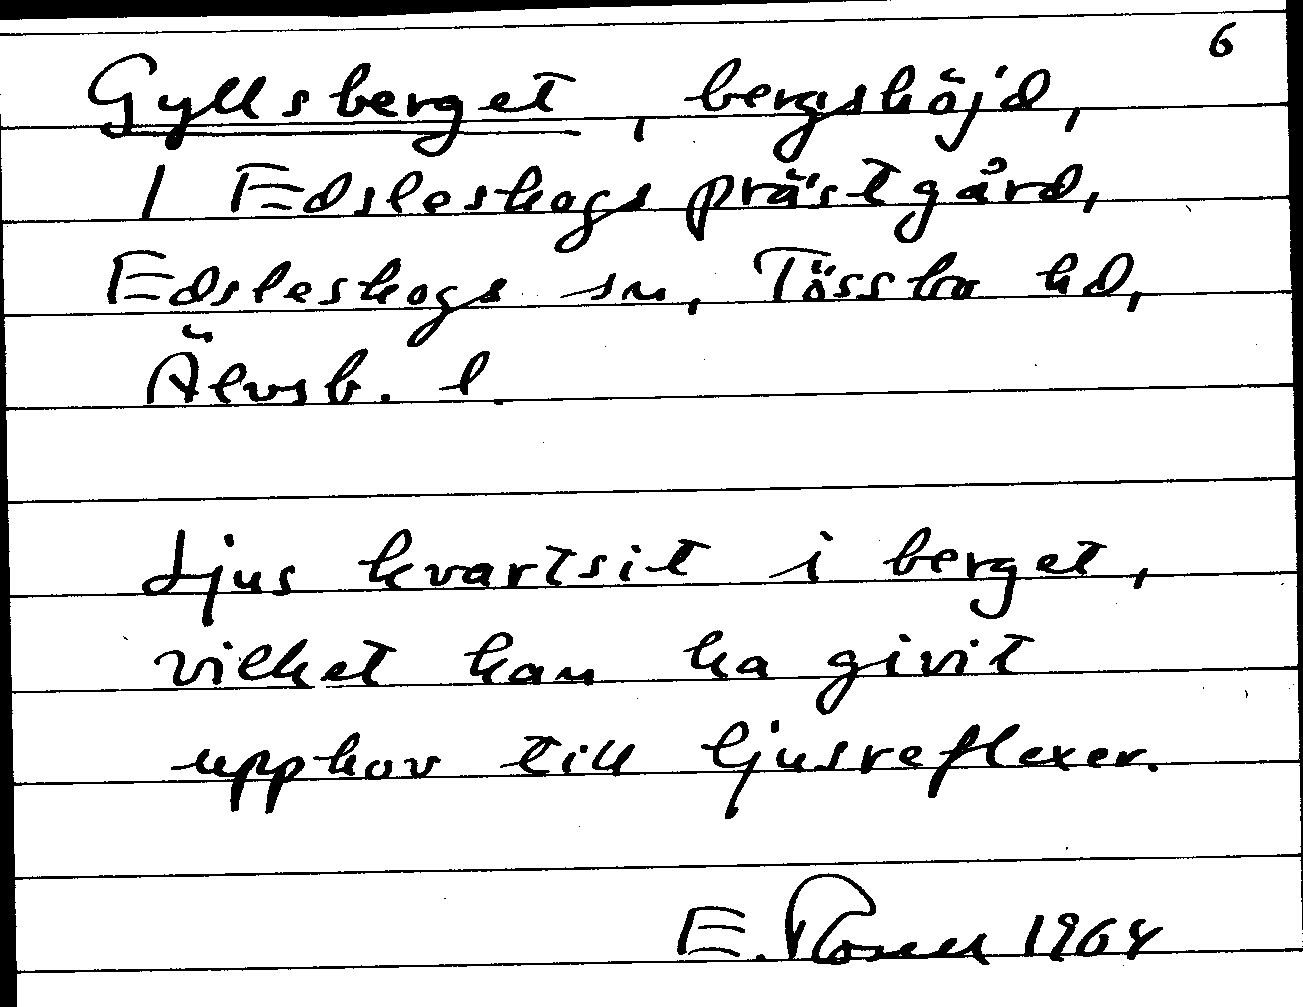 6
Gyllsberget, bergshöjd,
I Edsleskogs prästgård,
Edsleskogs sn, Tössbo hd,
Älvsb. l.
Ljus kvartsit i berget,
vilket kan ha givit
upphov till ljusreflexer.
E. Rosell 1964